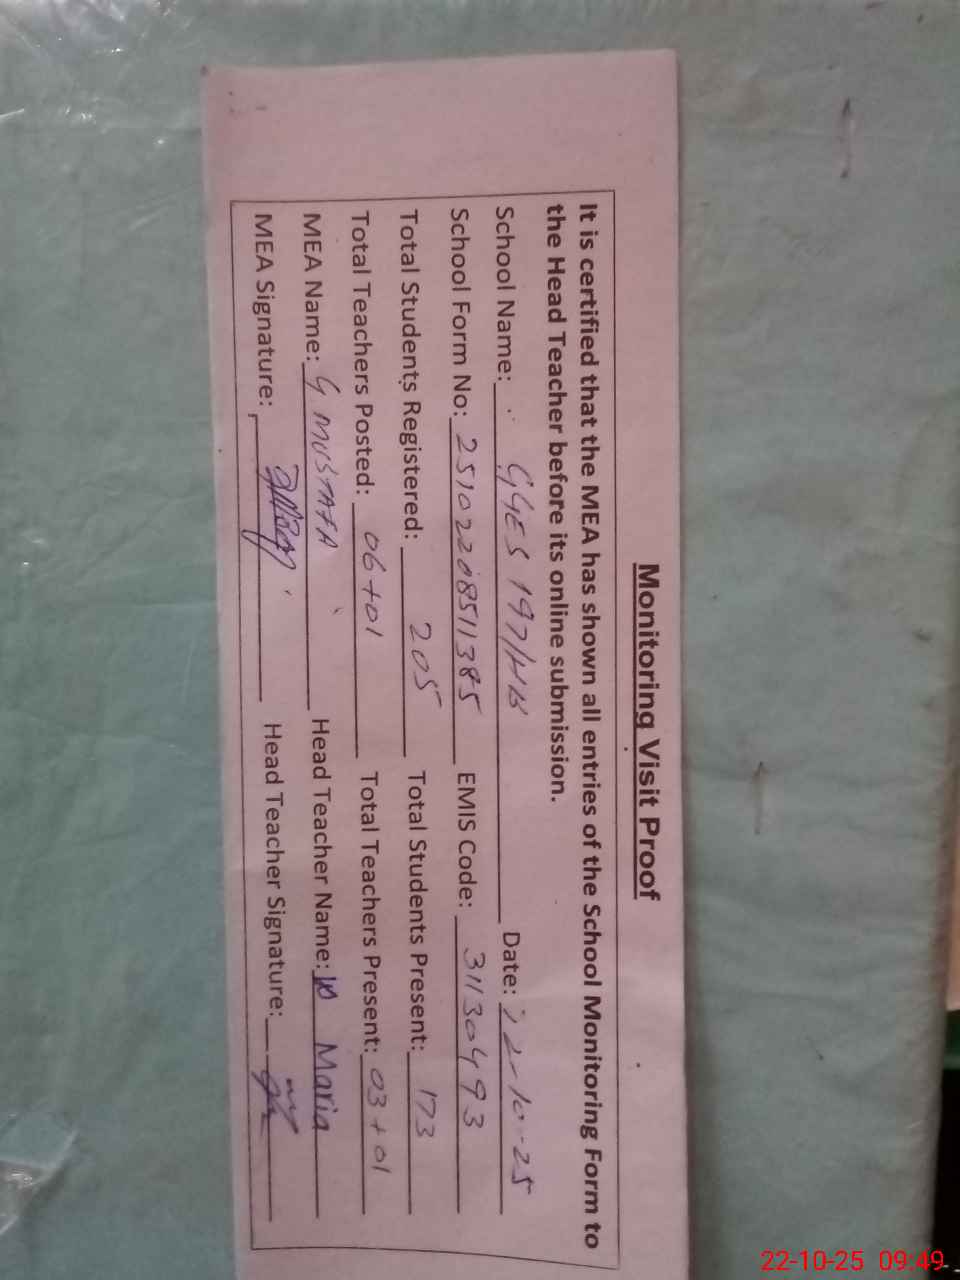 Monitoring Visit Proof
It is certified that the MEA has shown all entries of the School Monitoring Form to
the Head Teacher before its online submission.
School Name: GGES 197/HB Date: 22-10-25
School Form No: 2510220851385 EMIS Code: 31130493
Total Students Registered: 205 Total Students Present: 173
Total Teachers Posted: 06+01 Total Teachers Present: 03+01
MEA Name: G MUSTAFA Head Teacher Name: Maria
MEA Signature: Head Teacher Signature:
22-10-25 09:49